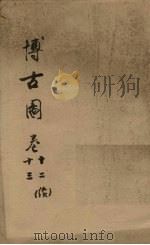 博古圖卷
十二
十三